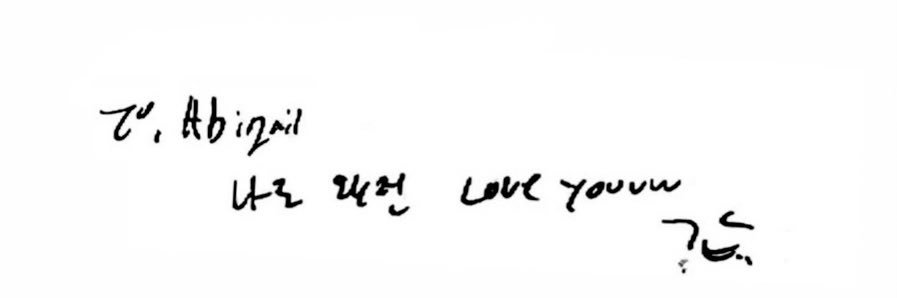 To. Abigail
나도 완전 Love youuu